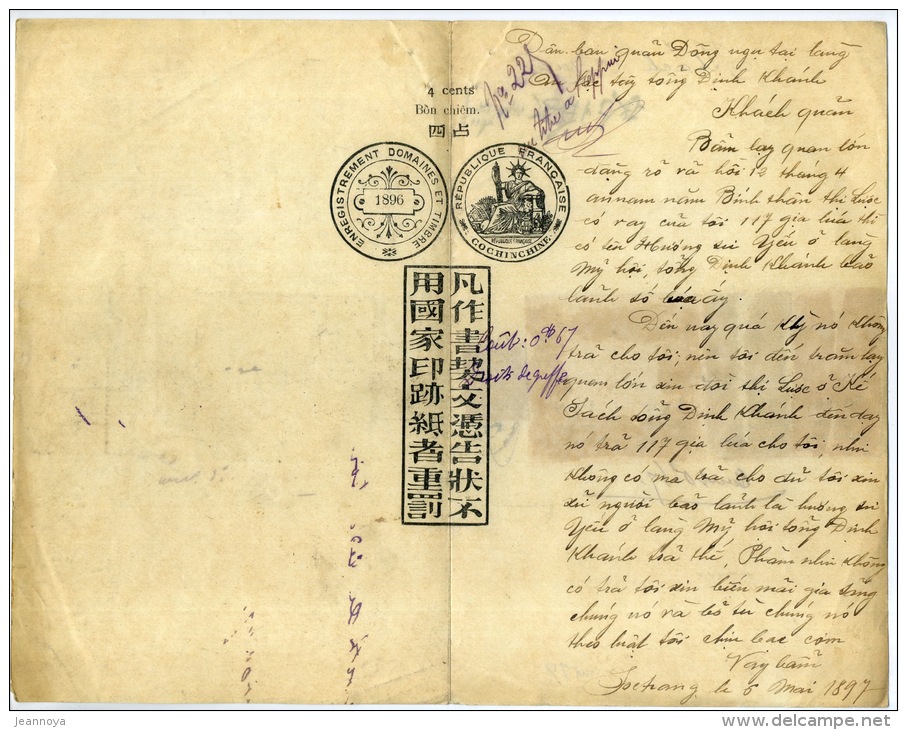 4 cents
Bòn chiêm.
四 占
ENREGISTREMENT DOMAINES ET TIMBRE
1896
RÉPUBLIQUE FRANÇAISE
RÉPUBLIQUE FRANÇAISE
COCHINCHINE
凡作書契文憑告狀不
用國家印跡紙者重罰
No 22
Dân ban quản Đồng ngụ tại làng
An lạc tây tổng Định Khánh
Khách quản
Bẩm lạy quan lớn
đặng rõ và hồi 12 tháng 4
annam năm Bính thân thị Lục
có vay của tôi 117 gia lúa thì
có tên Hương sư Yéu ở làng
Mỹ hội, tổng Định Khánh bảo
lãnh số lúa ấy.
Đến nay quá Kỳ nó Không
trả cho tôi; nên tôi đến trăm lạy
quan lớn xin đòi thị Lục ở Kế
Sách tổng Định Khánh đến dạy
nó trả 117 gia lúa cho tôi, như
Không có mà trả cho đủ tôi xin
xử người bảo lãnh là hương sư
Yéu ở làng Mỹ hội tổng Định
Khánh trả thế, Phầm như Không
có trả tôi xin biến mãi gia
chúng nó và bỏ tù chúng nó
theo luật tôi chịu bạc cơm
Nay bẩm
Soctrang le 6 Mai 1897
jeannoya
www.delcampe.net